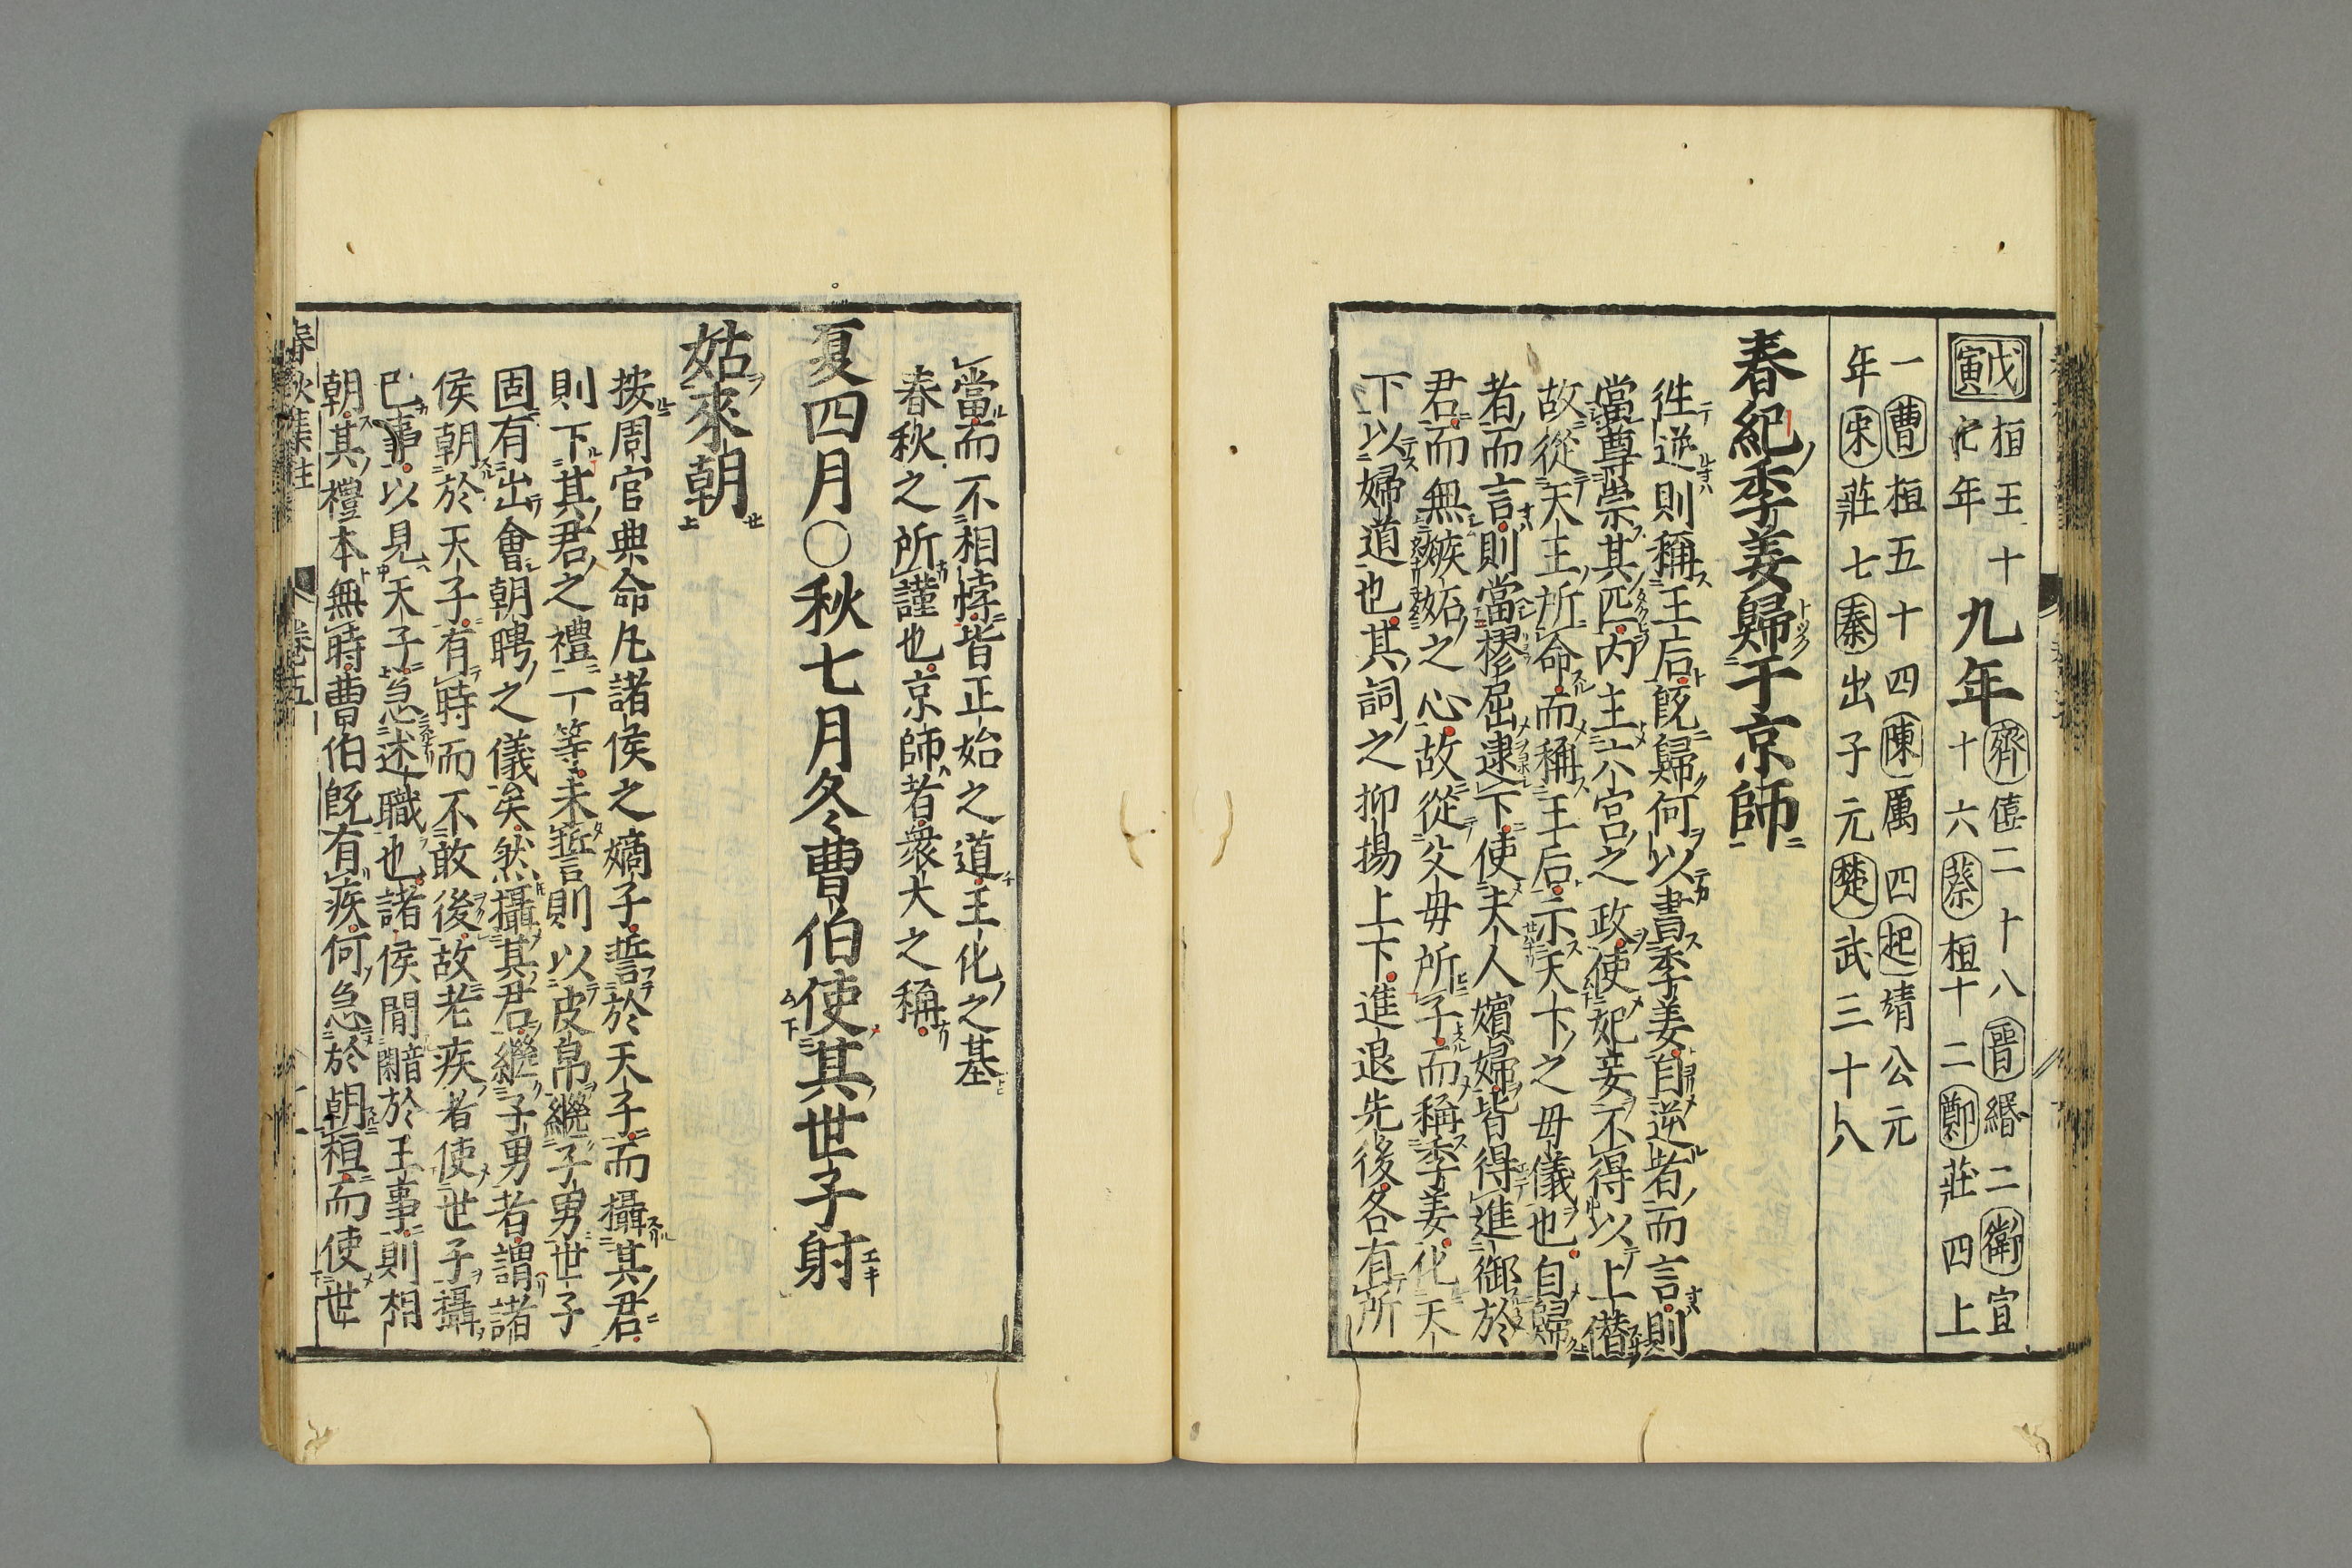 戊寅 桓王十九年 齊僖二十八 晉緡二 衛宣
七年 十六 蔡桓十二 鄭莊四上
一 曹桓五十四 陳厲四 杞靖公元
年 宋莊七 秦出子元 楚武三十八
春紀季姜歸于京師
往逆則稱王后旣歸何以書季姜自逆者而言則
當尊崇其匹内主六宮之政使妃妾不得以上僭
故從天王所命而稱王后示天下之母儀也自歸
者而言則當樛屈逮下使夫人嬪婦皆得進御於
君而無嫉妬之心故從父母所子而稱季姜化天
下以婦道也其詞之抑揚上下進退先後各有所
當而不相悖皆正始之道王化之基
春秋之所謹也京師者衆大之稱
夏四月○秋七月冬曹伯使其世子射
姑來朝
按周官典命凡諸侯之嫡子誓於天子而攝其君
則下其君之禮一等未誓則以皮帛繼子男世子
固有出會朝聘之儀矣然攝其君繼子男者謂諸
侯朝於天子有時而不敢後故老疾者使世子攝
已事以見天子急述職也諸侯間闕於王事則相
朝其禮本無時曹伯旣有疾何急於朝桓而使世
春秋集註 卷五